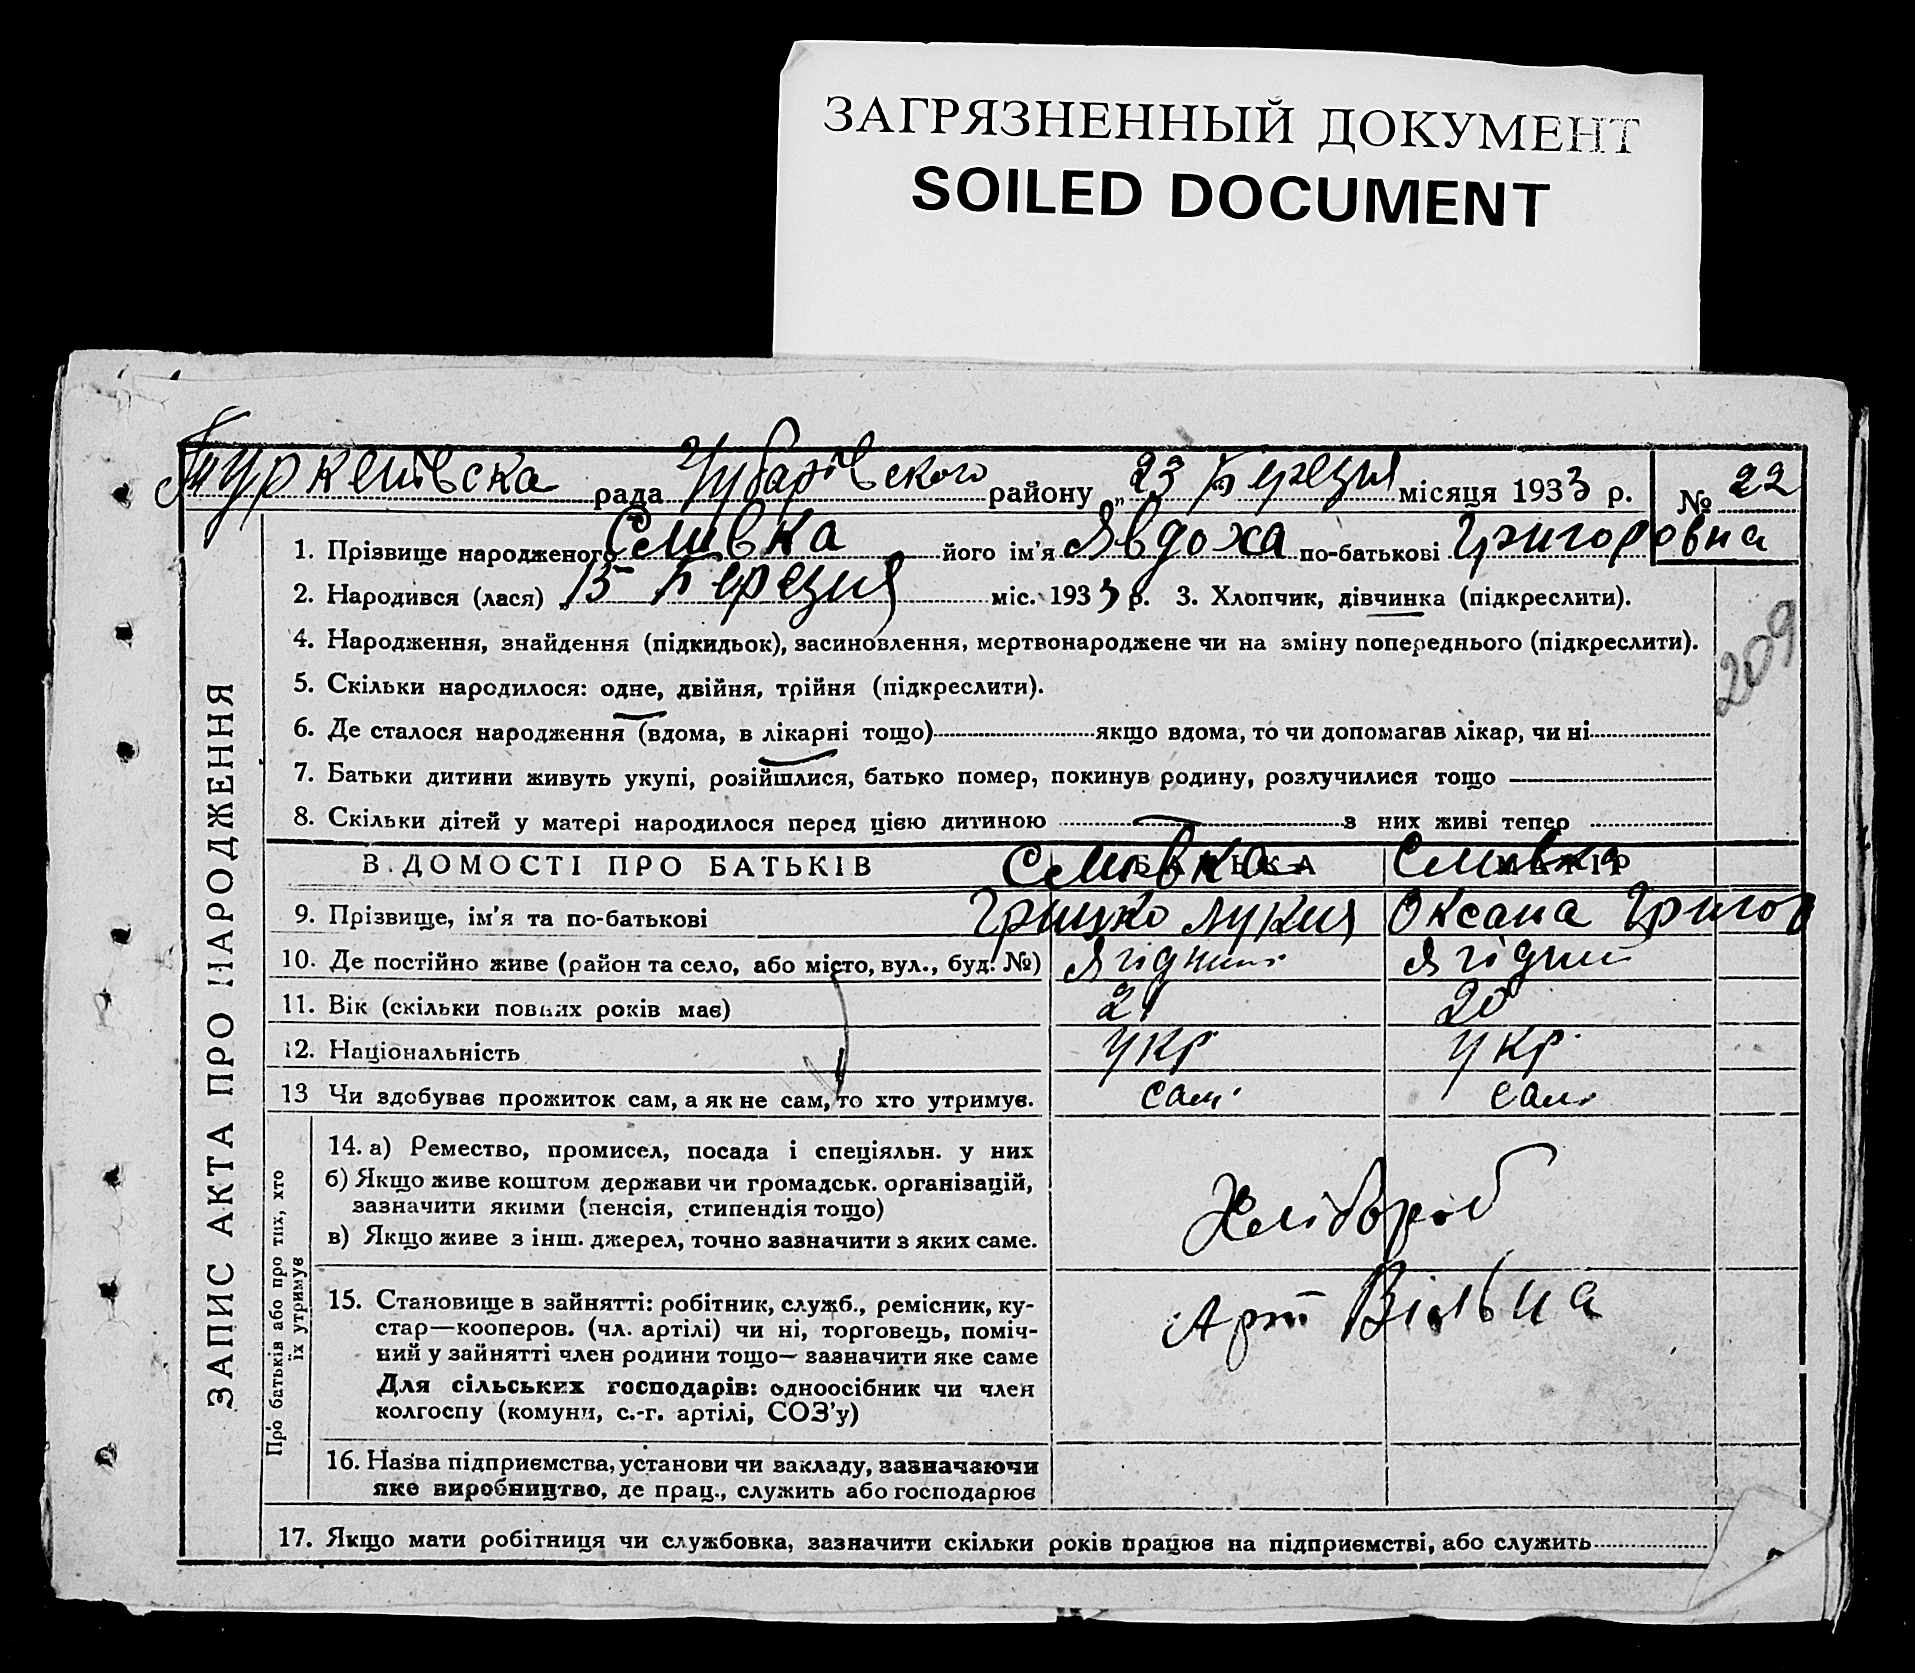 ЗАГРЯЗНЕННЫЙ ДОКУМЕНТ
SOILED DOCUMENT
Туркенівска рада Чубарівского району „23 Березня місяця 1933 р. № 22
1. Прізвище народженого Сливка його ім'я Явдоха по-батькові Григоровна
2. Народився (лася) „15 Березня міс. 1933 р. 3. Хлопчик, дівчинка (підкреслити).
4. Народження, знайдення (підкидьок), засиновлення, мертвонароджене чи на зміну попереднього (підкреслити).
209
5. Скільки народилося: одне, двійня, трійня (підкреслити).
6. Де сталося народження (вдома, в лікарні тощо) якщо вдома, то чи допомагав лікар, чи ні
7. Батьки дитини живуть укупі, розійшлися, батько помер, покинув родину, розлучилися тощо
8. Скільки дітей у матері народилося перед цією дитиною — з них живі тепер
ЗАПИС АКТА ПРО НАРОДЖЕННЯ
ВІДОМОСТІ ПРО БАТЬКІВ БАТЬКА МАТІР
Сливка Сливка
9. Прізвище, ім'я та по-батькові Грицко Лукия Оксана Григов
10. Де постійно живе (район та село, або місто, вул., буд. №)
11. Вік (скільки повних років має) 21 20
12. Національність укр укр.
13 Чи здобуває прожиток сам, а як не сам, то хто утримує. сам сам
Про батьків або про тих, хто їх утримує
14. а) Ремество, промисел, посада і спеціяльн. у них
б) Якщо живе коштом держави чи громадськ. організацій,
зазначити якими (пенсія, стипендія тощо)
в) Якщо живе з інш. джерел, точно зазначити з яких саме.
Хлібороб
15. Становище в зайнятті: робітник, служб., ремісник, ку-
стар—кооперов. (чл. артілі) чи ні, торговець, поміч-
ний у зайнятті член родини тощо— зазначити яке саме
Для сільських господарів: одноосібник чи член
колгоспу (комуни, с.-г. артілі, СОЗ'у)
Арт Вільна
16. Назва підприємства, установи чи закладу, зазначаючи
яке виробництво, де прац., служить або господарює
17. Якщо мати робітниця чи службовка, зазначити скільки років працює на підприємстві, або служить